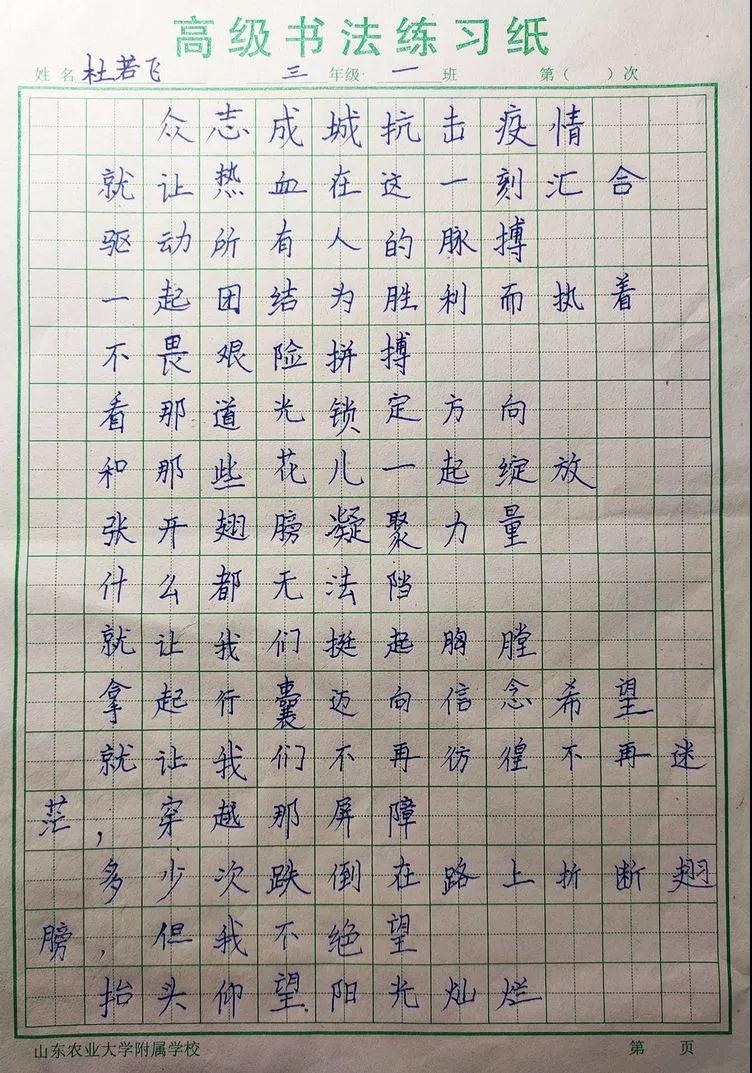 高级书法练习纸
姓名 杜若飞 三 年级 一 班 第( )次
众志成城抗击疫情
就让热血在这一刻汇合
驱动所有人的脉搏
一起团结为胜利而执着
不畏艰险拼搏
看那道光锁定方向
和那些花儿一起绽放
张开翅膀凝聚力量
什么都无法挡
就让我们挺起胸膛
拿起行囊迈向信念希望
就让我们不再彷徨不再迷
茫,穿越那屏障
多少次跌倒在路上折断翅
膀,但我不绝望
抬头仰望阳光灿烂
山东农业大学附属学校 第 页